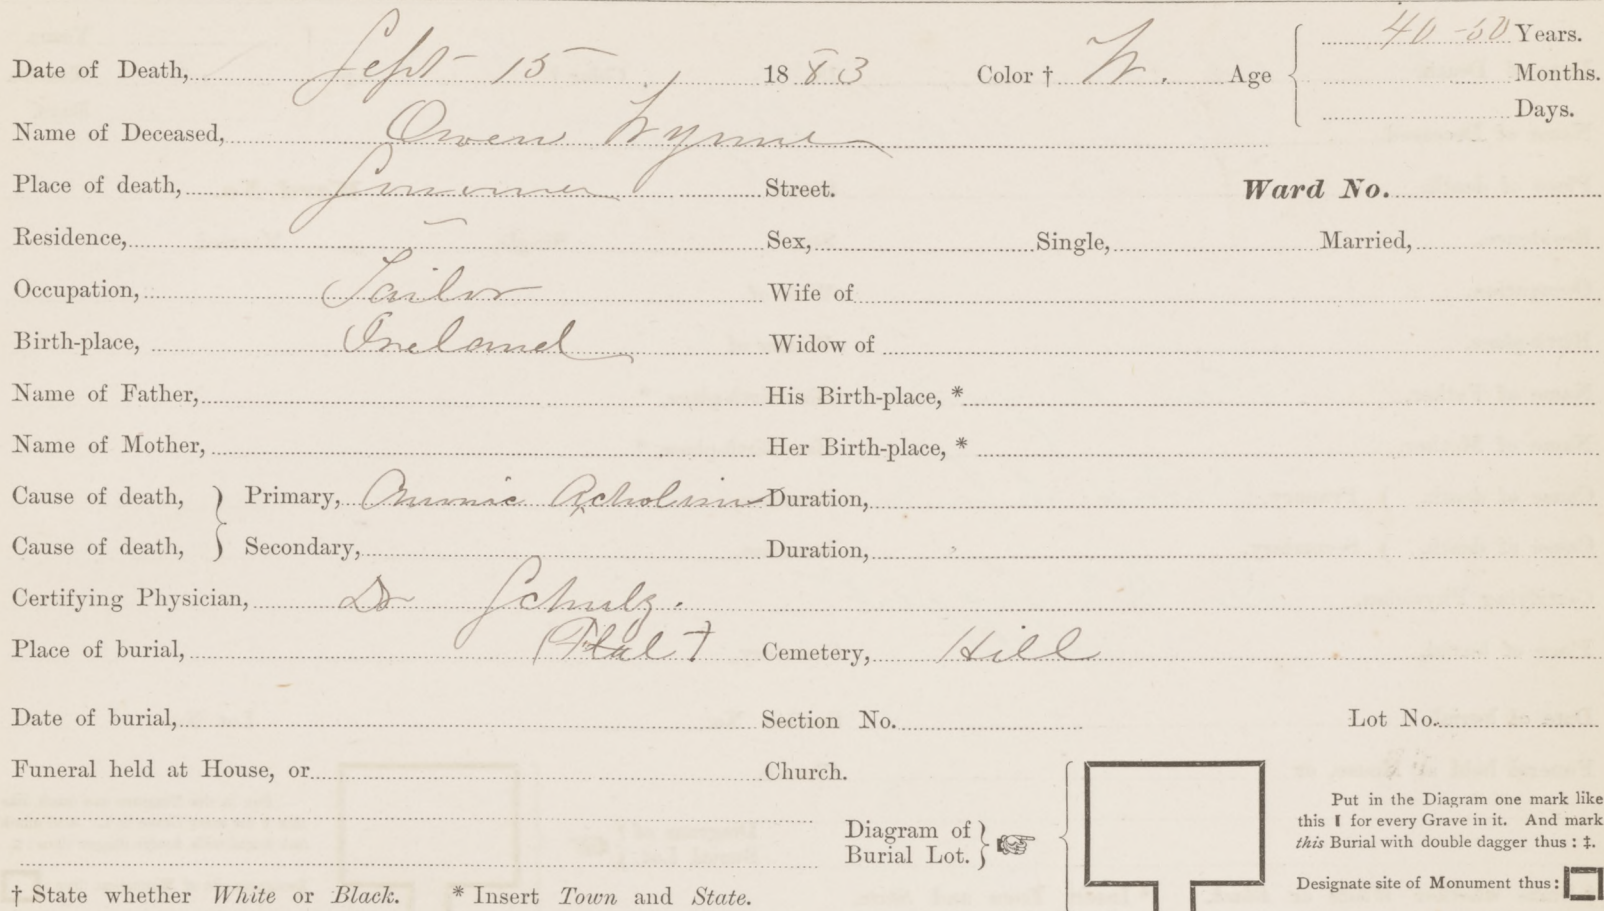 Date of Death, Sept 15, 1883 Color † W. Age 40-50 Years.
Months.
Days.
Name of Deceased, Owen Wynne
Place of death, Street. Ward No.
Residence, Sex, Single, Married,
Occupation, Tailor Wife of
Birth-place, Ireland Widow of
Name of Father, His Birth-place, *
Name of Mother, Her Birth-place, *
Cause of death, Primary, Duration,
Cause of death, Secondary, Duration,
Certifying Physician, Dr Schulz.
Place of burial, Cemetery, Hill
Date of burial, Section No. Lot No.
Funeral held at House, or Church.
Diagram of
Burial Lot.
Put in the Diagram one mark like
this ı for every Grave in it. And mark
this Burial with double dagger thus: ‡.
Designate site of Monument thus:
† State whether White or Black. * Insert Town and State.